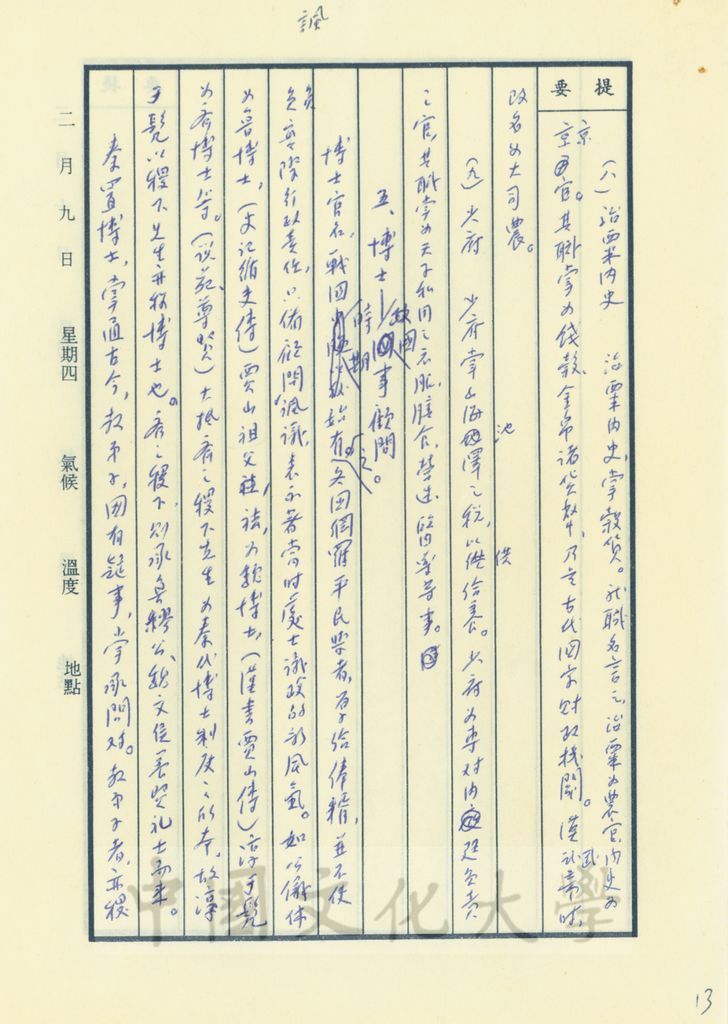 諷
提要
(八)治粟內史 治粟內史,掌穀貨。就職名言之,治粟為農官,內史為
京官。其職掌為錢穀、金帛諸貨幣,乃是古代國家財政機關。漢武帝時,
改名為大司農。
(九)少府 少府掌山海池澤之稅,以供給養。少府為專對內廷負責
之官,其職掌為天子私用之衣服、膳食、營造、醫藥等事。
五、博士—政國事顧問
博士官名,戰國時期始有之。各國網羅平民學者,厚給俸糈,並不使
負實際行政責任,只備顧問諷議,表示著當時處士議政的新風氣。如公儀休
為魯博士,(史記循吏傳)賈山祖父祛,為魏博士,(漢書賈山傳)淳于髡
為齊博士等。(說苑尊賢)大抵齊之稷下先生為秦代博士制度之所本,故淳
于髡以稷下先生亦稱博士也。齊之稷下,則承魯繆公、魏文侯養賢禮士而來。
秦置博士,掌通古今,教弟子,國有疑事,掌承問對。教弟子者,亦稷
二月九日 星期四 氣候 溫度 地點
中國文化大學
13